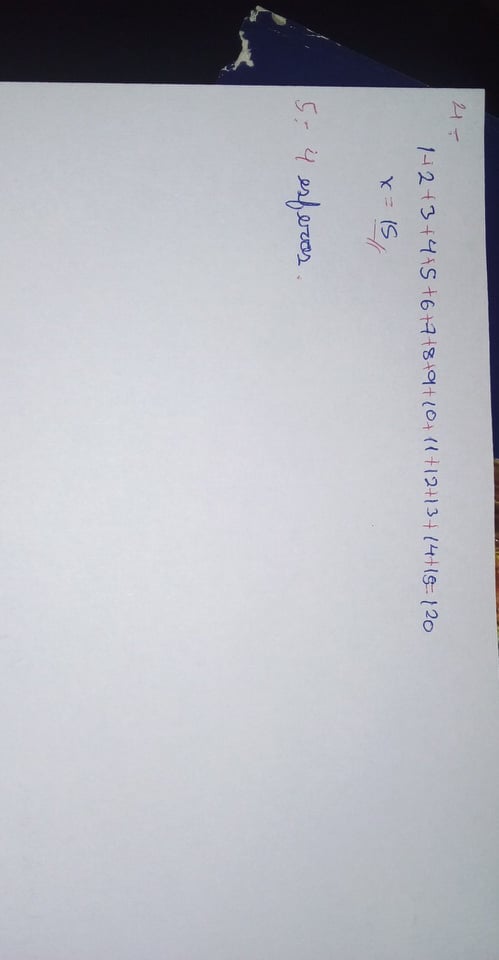 4:-
1+2+3+4+5+6+7+8+9+10+11+12+13+14+15=120
x=15//
5:- 4 esferas.